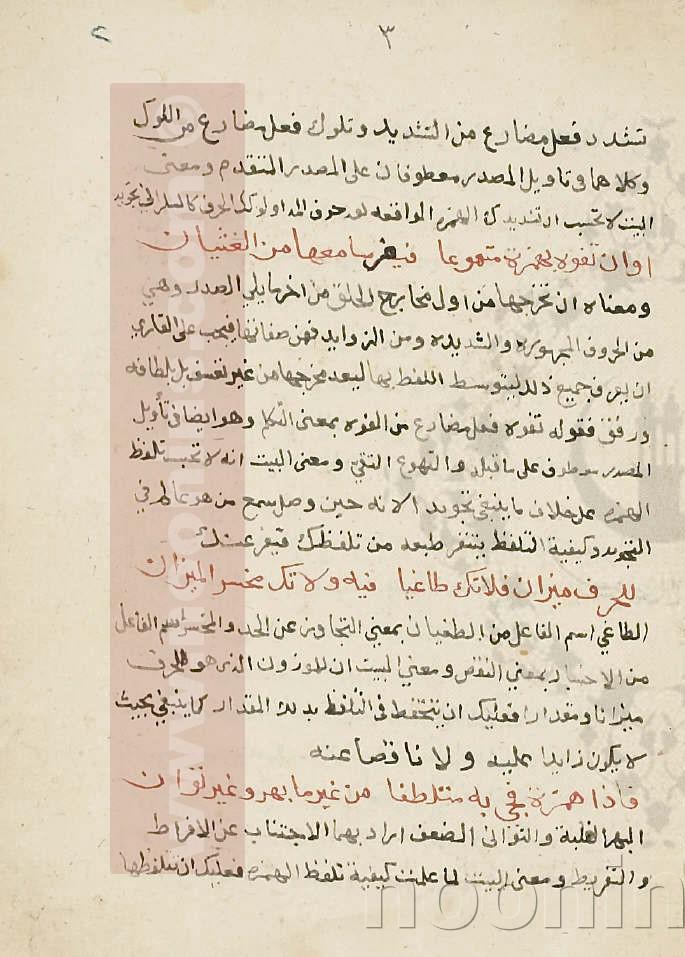 ٣
٢
تشدد فعل مضارع من التشديد وتلوك فعل مضارع من اللوك
وكلاهما فى تاويل المصدر معطوفان على المصدر المتقدم ومعنى
البيت لا تحسب ان تشديدك الهمزه الواقعه بعد حروف المد او لوكك الحرف كالسكران تجويد
او ان تفوه بهمزة متهوعا فيفر سامعها من الغثيان
ومعناه ان تخرجها من اول مخارج الحلق من اخر ما يلي الصدر وهي
من الحروف المجهوره والشديده ومن الزوايد فهن صفاتها فيجب على القاري
ان يعرف جميع ذلك ليتوسط اللفظ بها لبعد مخرجها من غير تعسف بل بلطافه
ورفق فقوله تفوه فعل مضارع من الفوه بمعنى التكلم وهو ايضا فى تأويل
المصدر معطوف على ما قبله والتهوع التقيّ ومعنى البيت انه لا تحسب تلفظ
الهمزه على خلاف ما ينبغي تجويد الانه حين وصل سمع من هو عالم في
التجويد وكيفية التلفظ يتنفر طبعه من تلفظك فيفر عنك
للحرف ميزان فلا تك طاغيا فيه ولا تك مخسر الميزان
الطاغي اسم الفاعل من الطغيان بمعنى التجاوز عن الحد والمخسر اسم الفاعل
من الاخسار بمعنى النقص ومعنى البيت ان للموزون الذى هو الحرف
ميزانا ومقدارا فعليك ان تتحفظ فى التلفظ بذلك المقدار كما ينبغي بحيث
لا يكون زايدا عليه ولا ناقصا عنه
فاذا همزت فجئ به متلطفا من غير ما بهر وغير توان
البهر الغلبة والتوانى الضعف اراد بهما الاجتناب عن الافراط
والتفريط ومعنى البيت لما علمت كيفية تلفظ الهمزه فعليك ان تتلفظها
noonin